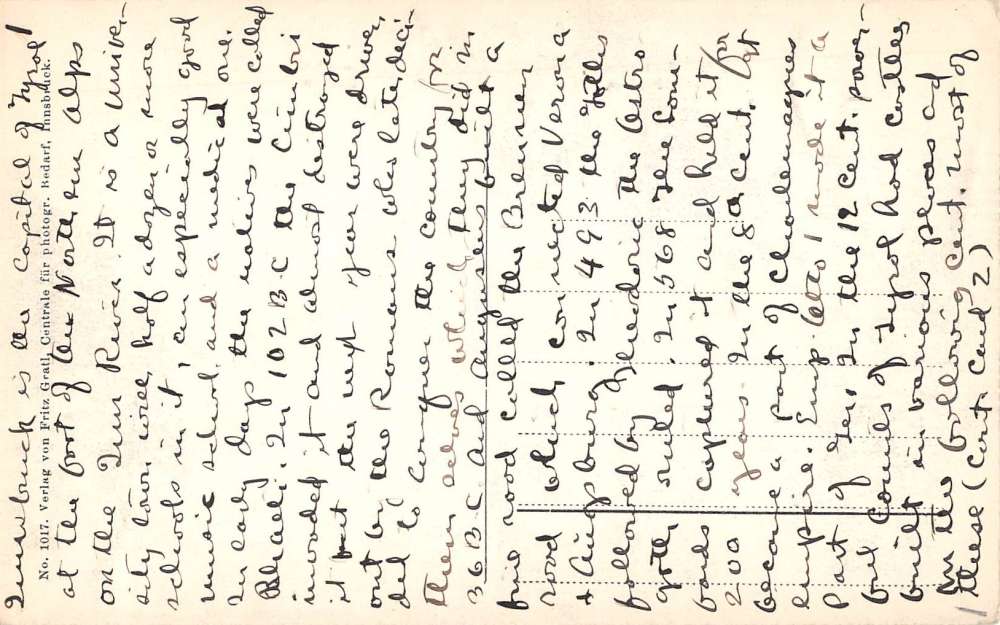 Innsbruck is the Capital of Tyrol
No. 1017. Verlag von Fritz Gratl, Centrale für photogr. Bedarf, Innsbruck.
at the foot of the Northern Alps
on the Inn River. It is a univer-
sity town, with half a dozen or more
schools in it, an especially good
music school, and a medical one.
In early days the natives were called
Rhaeti. In 102 B.C the Cimbri
invaded it and almost destroyed
it but the next year were driven
out by the Romans who later deci-
ded to conquer the country for
them selves which they did in
36 B.C. and Augustus built a
fine road called the Brenner
road which connected Verona
+ Augsburg. In 493 the Goths
followed by Theodoric the Ostro
goth, ruled. In 568 the Lom-
bards captured it and held it for
200 years. In the 8 Cent. it
became a part of Charlemagnes
empire. Emp Otto I made it a
part of Ger. In the 12 Cent. power-
ful Counts of Tyrol had castles
built in various places and
in the following Cent. most of
these (Cont. Card 2)